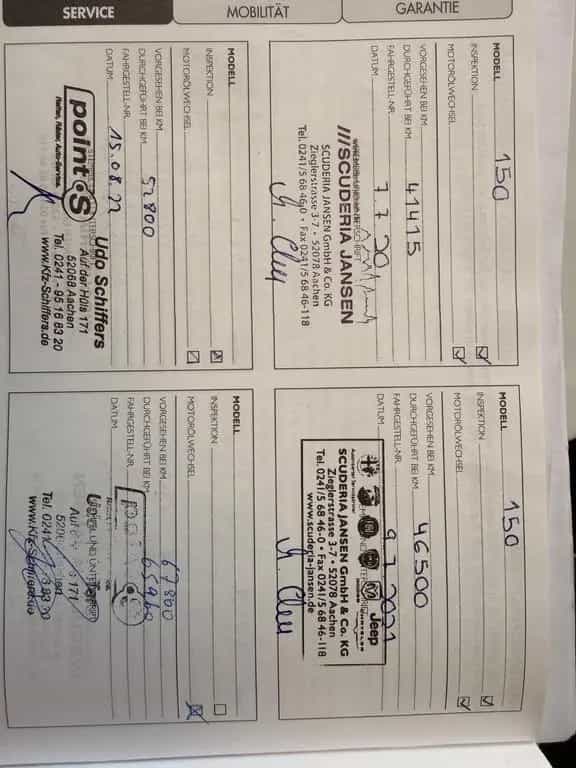 SERVICE
MOBILITÄT
GARANTIE
MODELL
150
INSPEKTION
MOTORÖLWECHSEL
VORGESEHEN BEI KM
DURCHGEFÜHRT BEI KM
41415
FAHRGESTELL-NR.
DATUM
7.7.20
///SCUDERIA JANSEN
SCUDERIA JANSEN GmbH & Co. KG
Zieglerstrasse 3-7 • 52078 Aachen
Tel. 0241/5 68 46-0 • Fax 0241/5 68 46-118
MODELL
150
INSPEKTION
MOTORÖLWECHSEL
VORGESEHEN BEI KM
46500
DURCHGEFÜHRT BEI KM
FAHRGESTELL-NR.
DATUM
9 7 2021
Jeep
SCUDERIA JANSEN GmbH & Co. KG
Zieglerstrasse 3-7 • 52078 Aachen
Tel. 0241/5 68 46-0 • Fax 0241/5 68 46-118
www.scuderia-jansen.de
MODELL
INSPEKTION
MOTORÖLWECHSEL
VORGESEHEN BEI KM
DURCHGEFÜHRT BEI KM
57800
FAHRGESTELL-NR.
DATUM
15.08.22
point S
Reifen, Räder, Auto-Service.
Udo Schiffers
Auf der Hüls 171
52068 Aachen
Tel. 0241 - 95 16 83 20
www.Kfz-Schiffers.de
MODELL
INSPEKTION
MOTORÖLWECHSEL
VORGESEHEN BEI KM
67860
DURCHGEFÜHRT BEI KM
FAHRGESTELL-NR.
DATUM